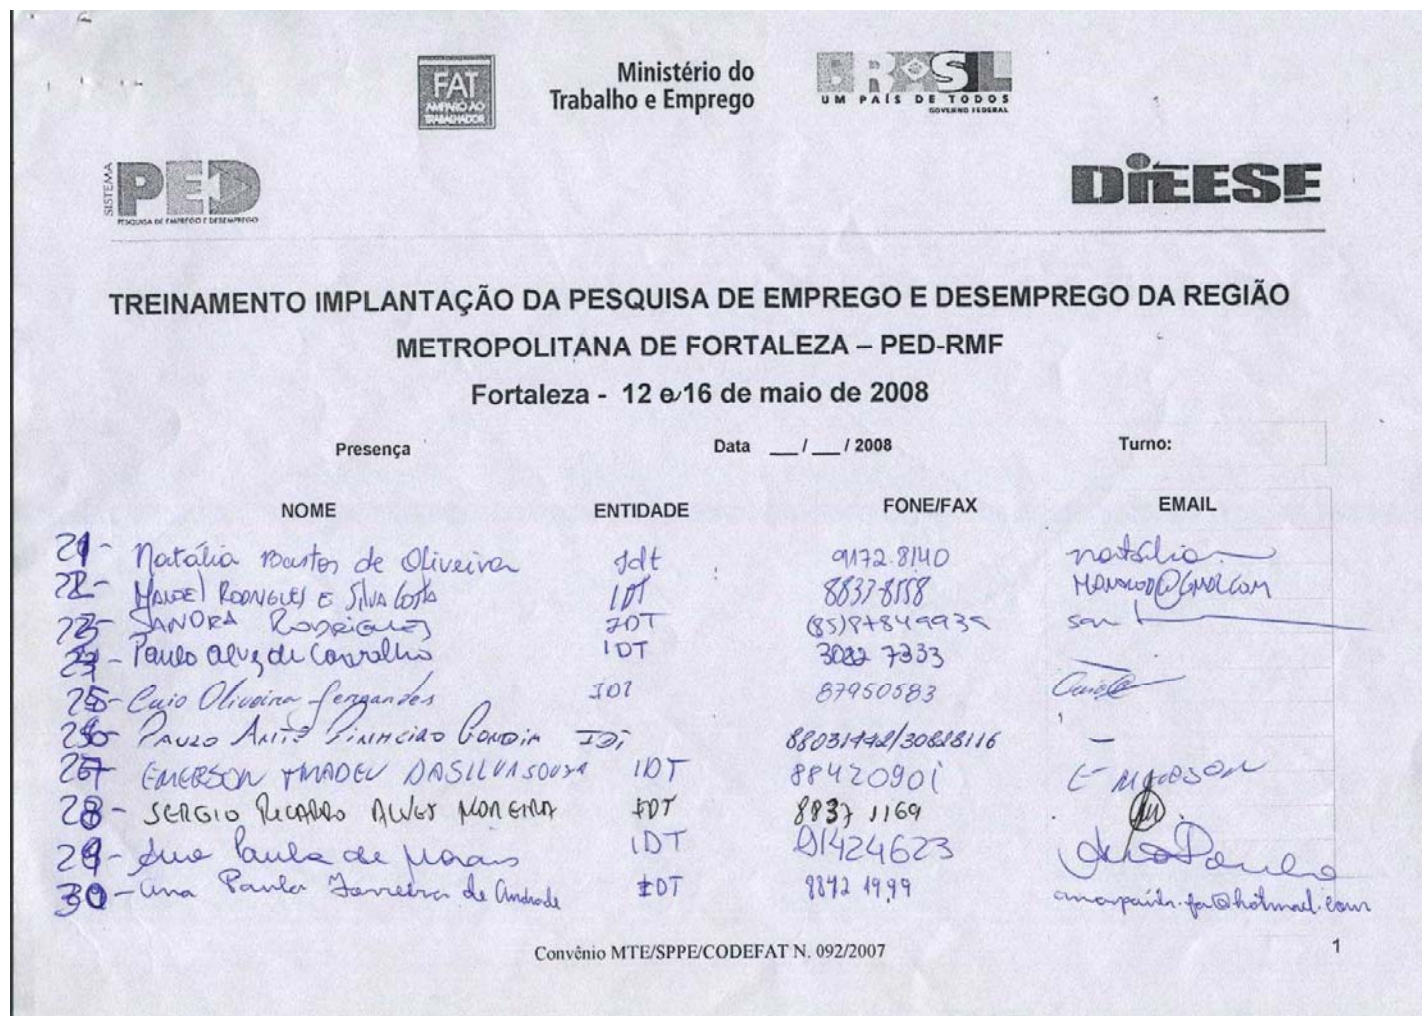 FAT
AMPARO AO
TRABALHADOR
Ministério do
Trabalho e Emprego
BRASIL
UM PAÍS DE TODOS
GOVERNO FEDERAL
SISTEMA
PED
PESQUISA DE EMPREGO E DESEMPREGO
DIEESE
TREINAMENTO IMPLANTAÇÃO DA PESQUISA DE EMPREGO E DESEMPREGO DA REGIÃO
METROPOLITANA DE FORTALEZA – PED-RMF
Fortaleza - 12 e 16 de maio de 2008
Presença Data __/__/ 2008 Turno:
NOME ENTIDADE FONE/FAX EMAIL
21- Natália Bastos de Oliveira Idt 9172.8140 natália
22- MANOEL RODRIGUES E SILVA COSTA IDT 88378558
23- SANDRA RODRIGUES IDT (85)87849939
24- Paulo Alves de Carvalho IDT 3082 7333
25- Caio Oliveira Fernandes IDT 87950583
26- PAULO PINHEIRO GONDIM IDT /30828116 –
27- EMERSON AMADEU DA SILVA SOUSA IDT 88420901 EMERSON
28- SERGIO RICARDO ALVES MOREIRA IDT 8837 1169
29- Ana Paula de Morais IDT 91424623 Ana Paula
30- Ana Paula Ferreira de Andrade IDT 8842 1999
Convênio MTE/SPPE/CODEFAT N. 092/2007 1